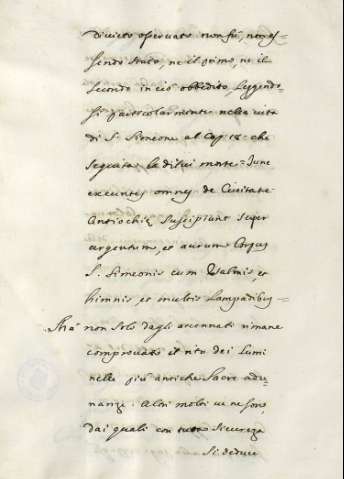 Divieto osservato non fù, non es=
sendo stato, ne il primo, ne il
secondo in ciò obbedito, Leggendo=
si particolarmente nella vita
di S. Simeone al Cap. 18. che
seguita la di lui morte = Tunc
exeuntes omnes de Civitate
Antiochiȩ suscipiunt super
argentum, et aurum Corpus
S. Simeonis cum Psalmis, et
himnis, et multis Lampadibus =
Mà non solo dagli accennati rimane
comprovato il rito dei Lumi
nelle più antiche Sacre adu-
nanze. Altri molti ve ne sono,
dai quali con tutta sicurezza
si deduce